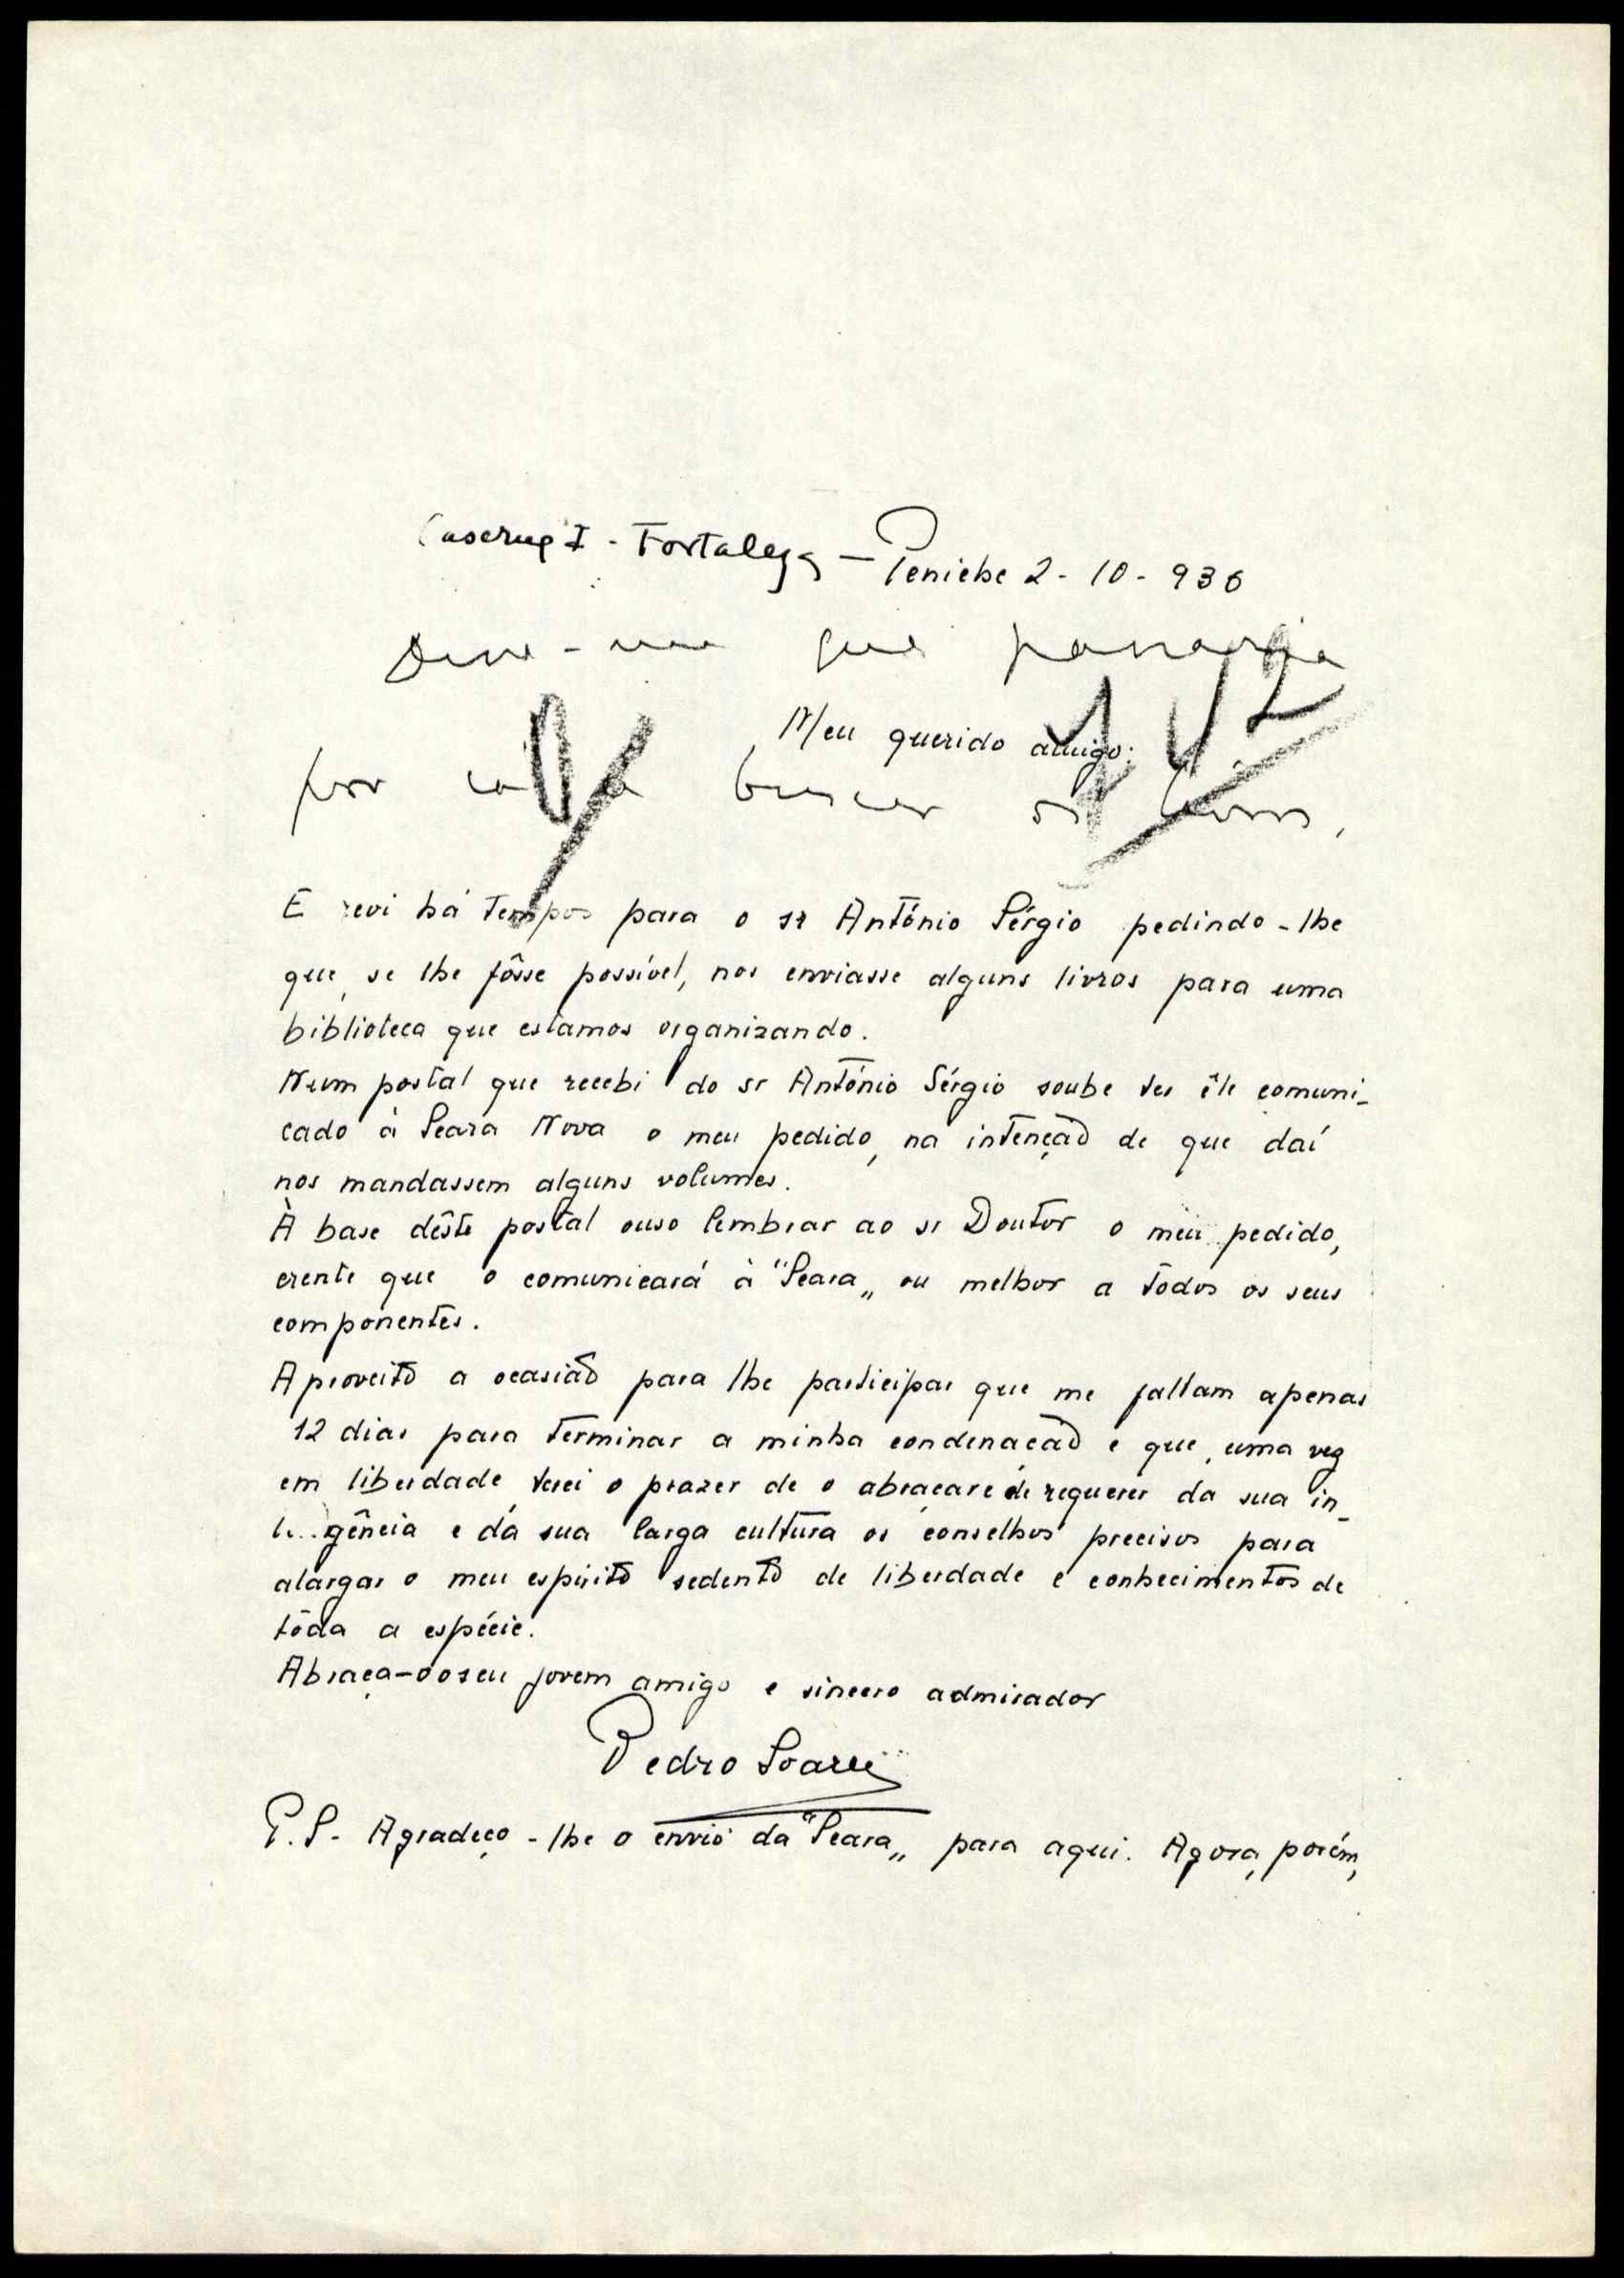 Caserna I - Fortaleza - Peniche 2-10-936
Disse-me que passaria
Meu querido amigo:
por cá a buscar os livros,
E revi há tempos para o sr António Sérgio pedindo-lhe
que, se lhe fôsse possível, nos enviasse alguns livros para uma
biblioteca que estamos organizando.
Num postal que recebi do sr António Sérgio soube ter êle comuni-
cado à Seara Nova o meu pedido, na intenção de que daí
nos mandassem alguns volumes.
À base dêste postal ouso lembrar ao sr Doutor o meu pedido,
crente que o comunicará à "Seara„ ou melhor a todos os seus
componentes.
Aproveito a ocasião para lhe participar que me faltam apenas
12 dias para terminar a minha condenação e que, uma vez
em liberdade, terei o prazer de o abraçar e de requerer da sua in-
te..gência e da sua larga cultura os conselhos precisos para
alargar o meu espírito sedento de liberdade e conhecimentos de
tôda a espécie.
Abraça-o o seu jovem amigo e sincero admirador
Pedro Soares
P.S- Agradeço-lhe o envio da "Seara„ para aqui. Agora, porém,